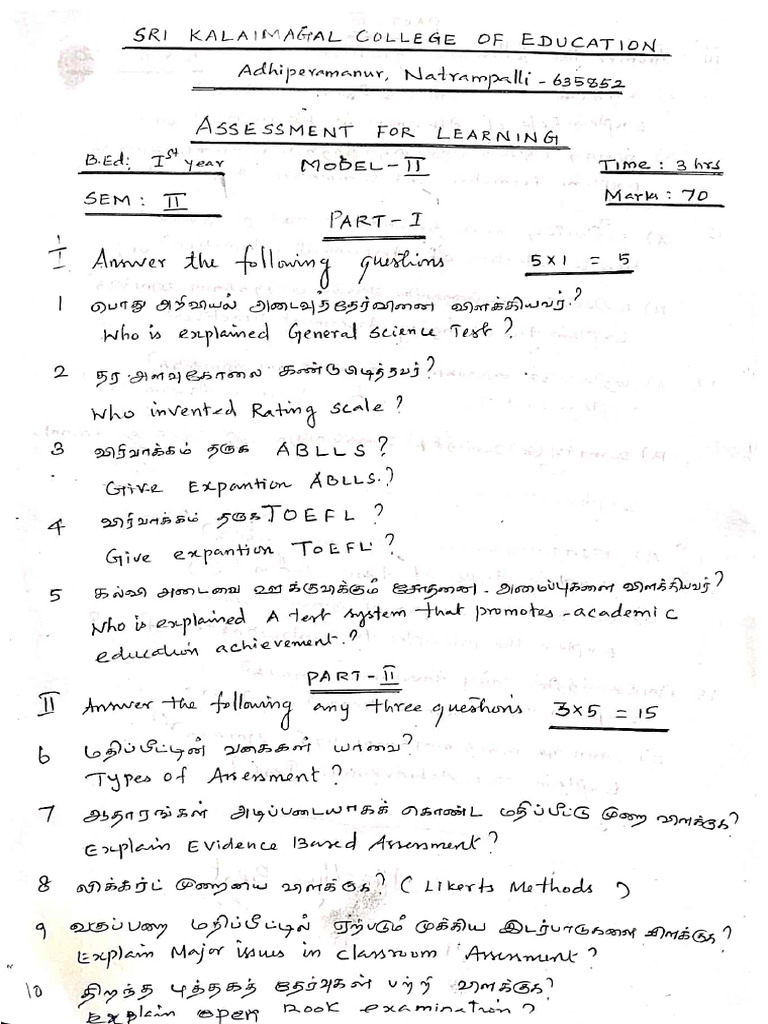 SRI KALAIMAGAL COLLEGE OF EDUCATION
Adhiperamanur, Natrampalli - 635852
ASSESSMENT FOR LEARNING
B.Ed: Ist year MODEL - II Time : 3 hrs
SEM : II Marks : 70
PART - I
I Answer the following questions 5 x 1 = 5
1 பொது அறிவியல் அடைவுத்தேர்வினை விளக்கியவர்?
Who is explained General Science Test ?
2 தர அளவுகோலை கண்டுபிடித்தவர்?
Who invented Rating scale ?
3 விரிவாக்கம் தருக ABLLS ?
Give Expantion ABLLS.?
4 விரிவாக்கம் தருக TOEFL ?
Give expantion TOEFL ?
5 கல்வி அடைவை ஊக்குவிக்கும் சோதனை - அமைப்புகளை விளக்கியவர்?
Who is explained A test system that promotes - academic
education achievement.?
PART - II
II Answer the following any three questions 3 x 5 = 15
6 மதிப்பீட்டின் வகைகள் யாவை?
Types of Assessment ?
7 ஆதாரங்கள் அடிப்படையாகக் கொண்ட மதிப்பீட்டு முறை விளக்குக?
Explain Evidence Based Assessment ?
8 லிக்கர்ட் முறையை விளக்குக? ( Likerts Methods )
9 வகுப்பறை மதிப்பீட்டில் ஏற்படும் முக்கிய இடர்பாடுகளை விளக்குக?
Explain Major issues in classroom Assessment ?
10 திறந்த புத்தகத் தேர்வுகள் பற்றி விளக்குக?
Explain open Book examination ?